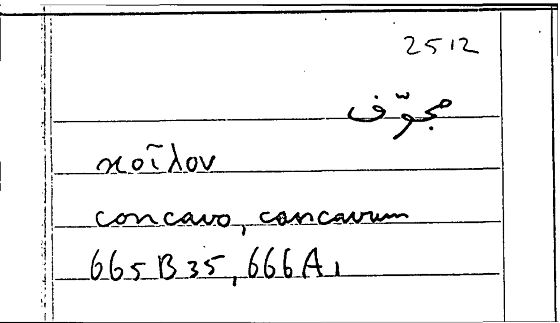 2512
مجوّف
κοῖλον
concavo, concavum
665B35, 666A1